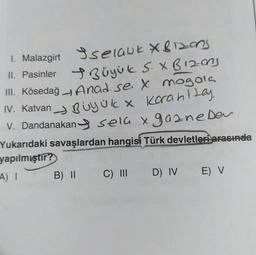 I. Malazgirt → Selçuk x Bizans
II. Pasinler → Büyük S. x Bizans
III. Kösedağ → Anad. se. x mogola
IV. Katvan → Büyük x Karahitay
V. Dandanakan → selç x gazneber
Yukarıdaki savaşlardan hangisi Türk devletleri arasında
yapılmıştır?
A) I B) II C) III D) IV E) V